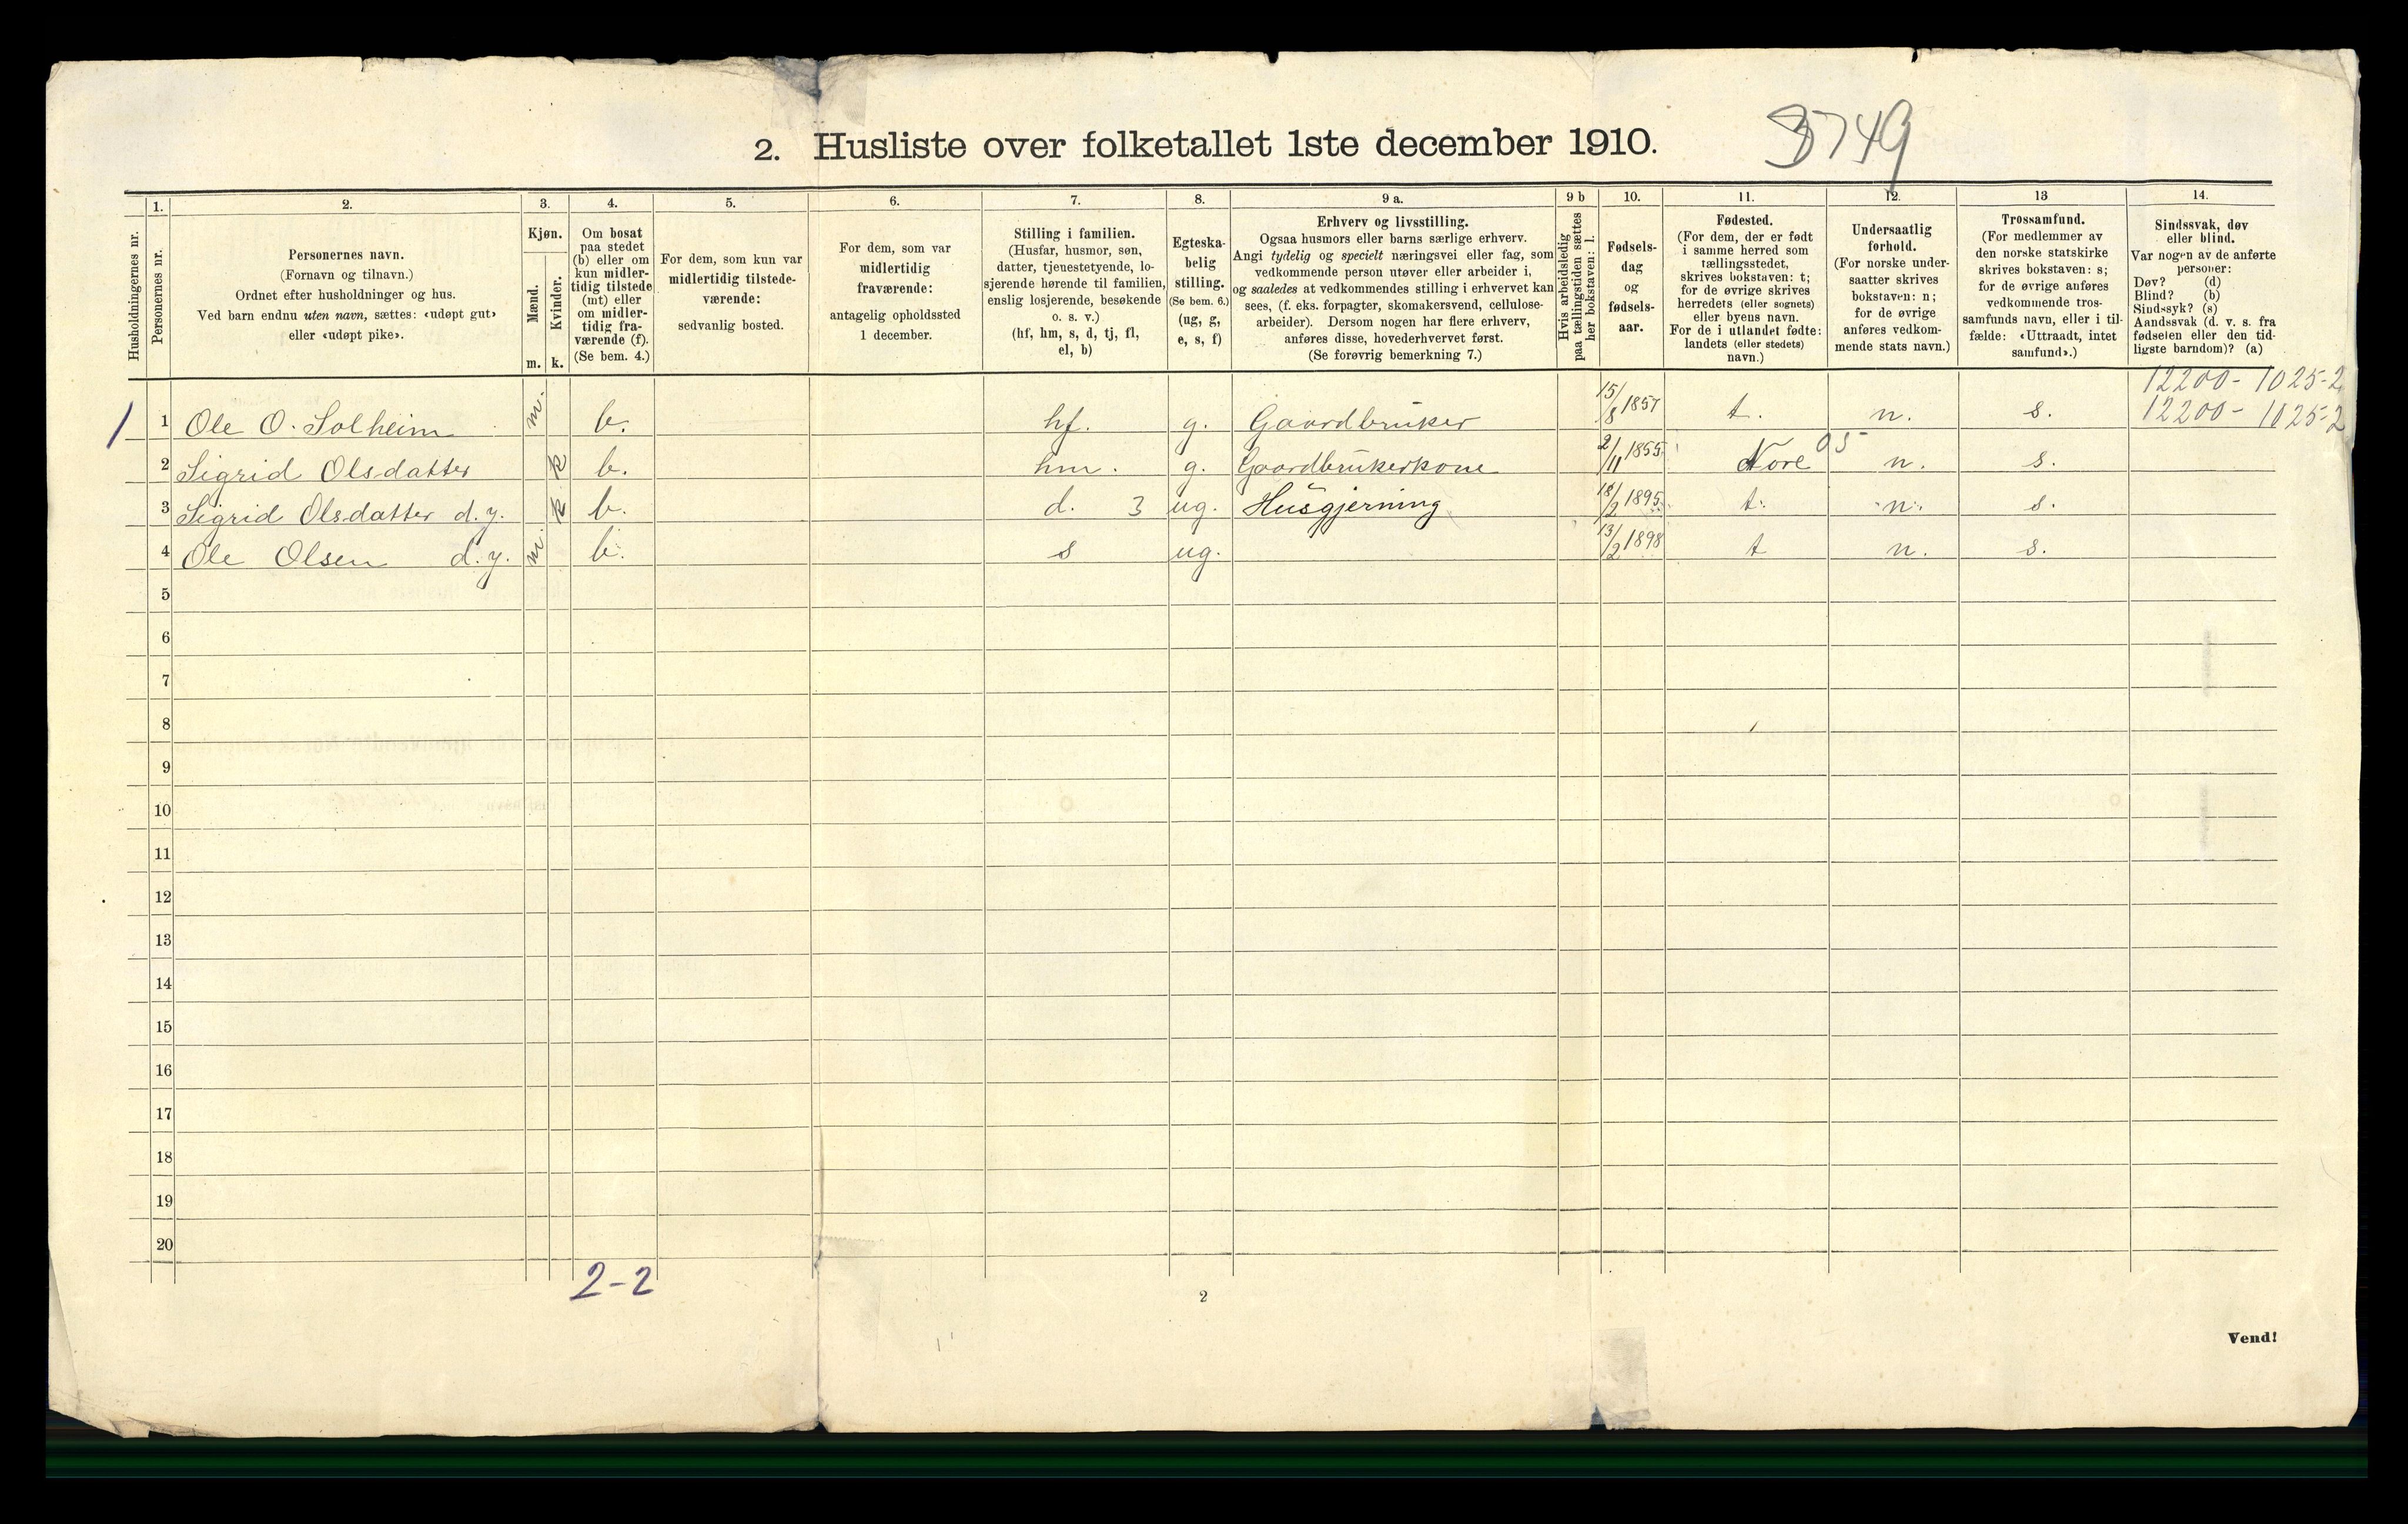 2. Husliste over folketallet 1ste december 1910.
3749
Husholdningernes nr.
1.
Personernes nr.
2.
Personernes navn.
(Fornavn og tilnavn.)
Ordnet efter husholdninger og hus.
Ved barn endnu uten navn, sættes: «udøpt gut»
eller «udøpt pike».
3.
Kjøn.
Mænd.
Kvinder.
m. k.
4.
Om bosat
paa stedet
(b) eller om
kun midler-
tidig tilstede
(mt) eller
om midler-
tidig fra-
værende (f).
(Se bem. 4.)
5.
For dem, som kun var
midlertidig tilstede-
værende:
sedvanlig bosted.
6.
For dem, som var
midlertidig
fraværende:
antagelig opholdssted
1 december.
7.
Stilling i familien.
(Husfar, husmor, søn,
datter, tjenestetyende, lo-
sjerende hørende til familien,
enslig losjerende, besøkende
o. s. v.)
(hf, hm, s, d, tj, fl,
el, b)
8.
Egteska-
belig
stilling.
(Se bem. 6.)
(ug, g,
e, s, f)
9 a.
Erhverv og livsstilling.
Ogsaa husmors eller barns særlige erhverv.
Angi tydelig og specielt næringsvei eller fag, som
vedkommende person utøver eller arbeider i,
og saaledes at vedkommendes stilling i erhvervet kan
sees, (f. eks. forpagter, skomakersvend, cellulose-
arbeider). Dersom nogen har flere erhverv,
anføres disse, hovederhvervet først.
(Se forøvrig bemerkning 7.)
9 b
Hvis arbeidsledig
paa tællingstiden sættes
her bokstaven: l.
10.
Fødsels-
dag
og
fødsels-
aar.
11.
Fødested.
(For dem, der er født
i samme herred som
tællingsstedet,
skrives bokstaven: t;
for de øvrige skrives
herredets (eller sognets)
eller byens navn.
For de i utlandet fødte:
landets (eller stedets)
navn.)
12.
Undersaatlig
forhold.
(For norske under-
saatter skrives
bokstaven: n;
for de øvrige
anføres vedkom-
mende stats navn.)
13
Trossamfund.
(For medlemmer av
den norske statskirke
skrives bokstaven: s;
for de øvrige anføres
vedkommende tros-
samfunds navn, eller i til-
fælde: «Uttraadt, intet
samfund».)
14.
Sindssvak, døv
eller blind.
Var nogen av de anførte
personer:
Døv? (d)
Blind? (b)
Sindssyk? (s)
Aandssvak (d. v. s. fra
fødselen eller den tid-
ligste barndom)? (a)
12200-1025-2
1 1 Ole O. Solheim m. b. hf. g. Gaardbruker 15/8 1857 t. n. s. 12200-1025-2
2 Sigrid Olsdatter k b. hm. g. Gaardbrukerkone 2/11 1855 Nore 05 n. s.
3 Sigrid Olsdatter d.y. k b. d. 3 ug. Husgjerning 18/2 1895 t. n. s.
4 Ole Olsen d.y. m. b. s ug. 13/2 1898 t n. s.
5
6
7
8
9
10
11
12
13
14
15
16
17
18
19
20
2-2
2
Vend!